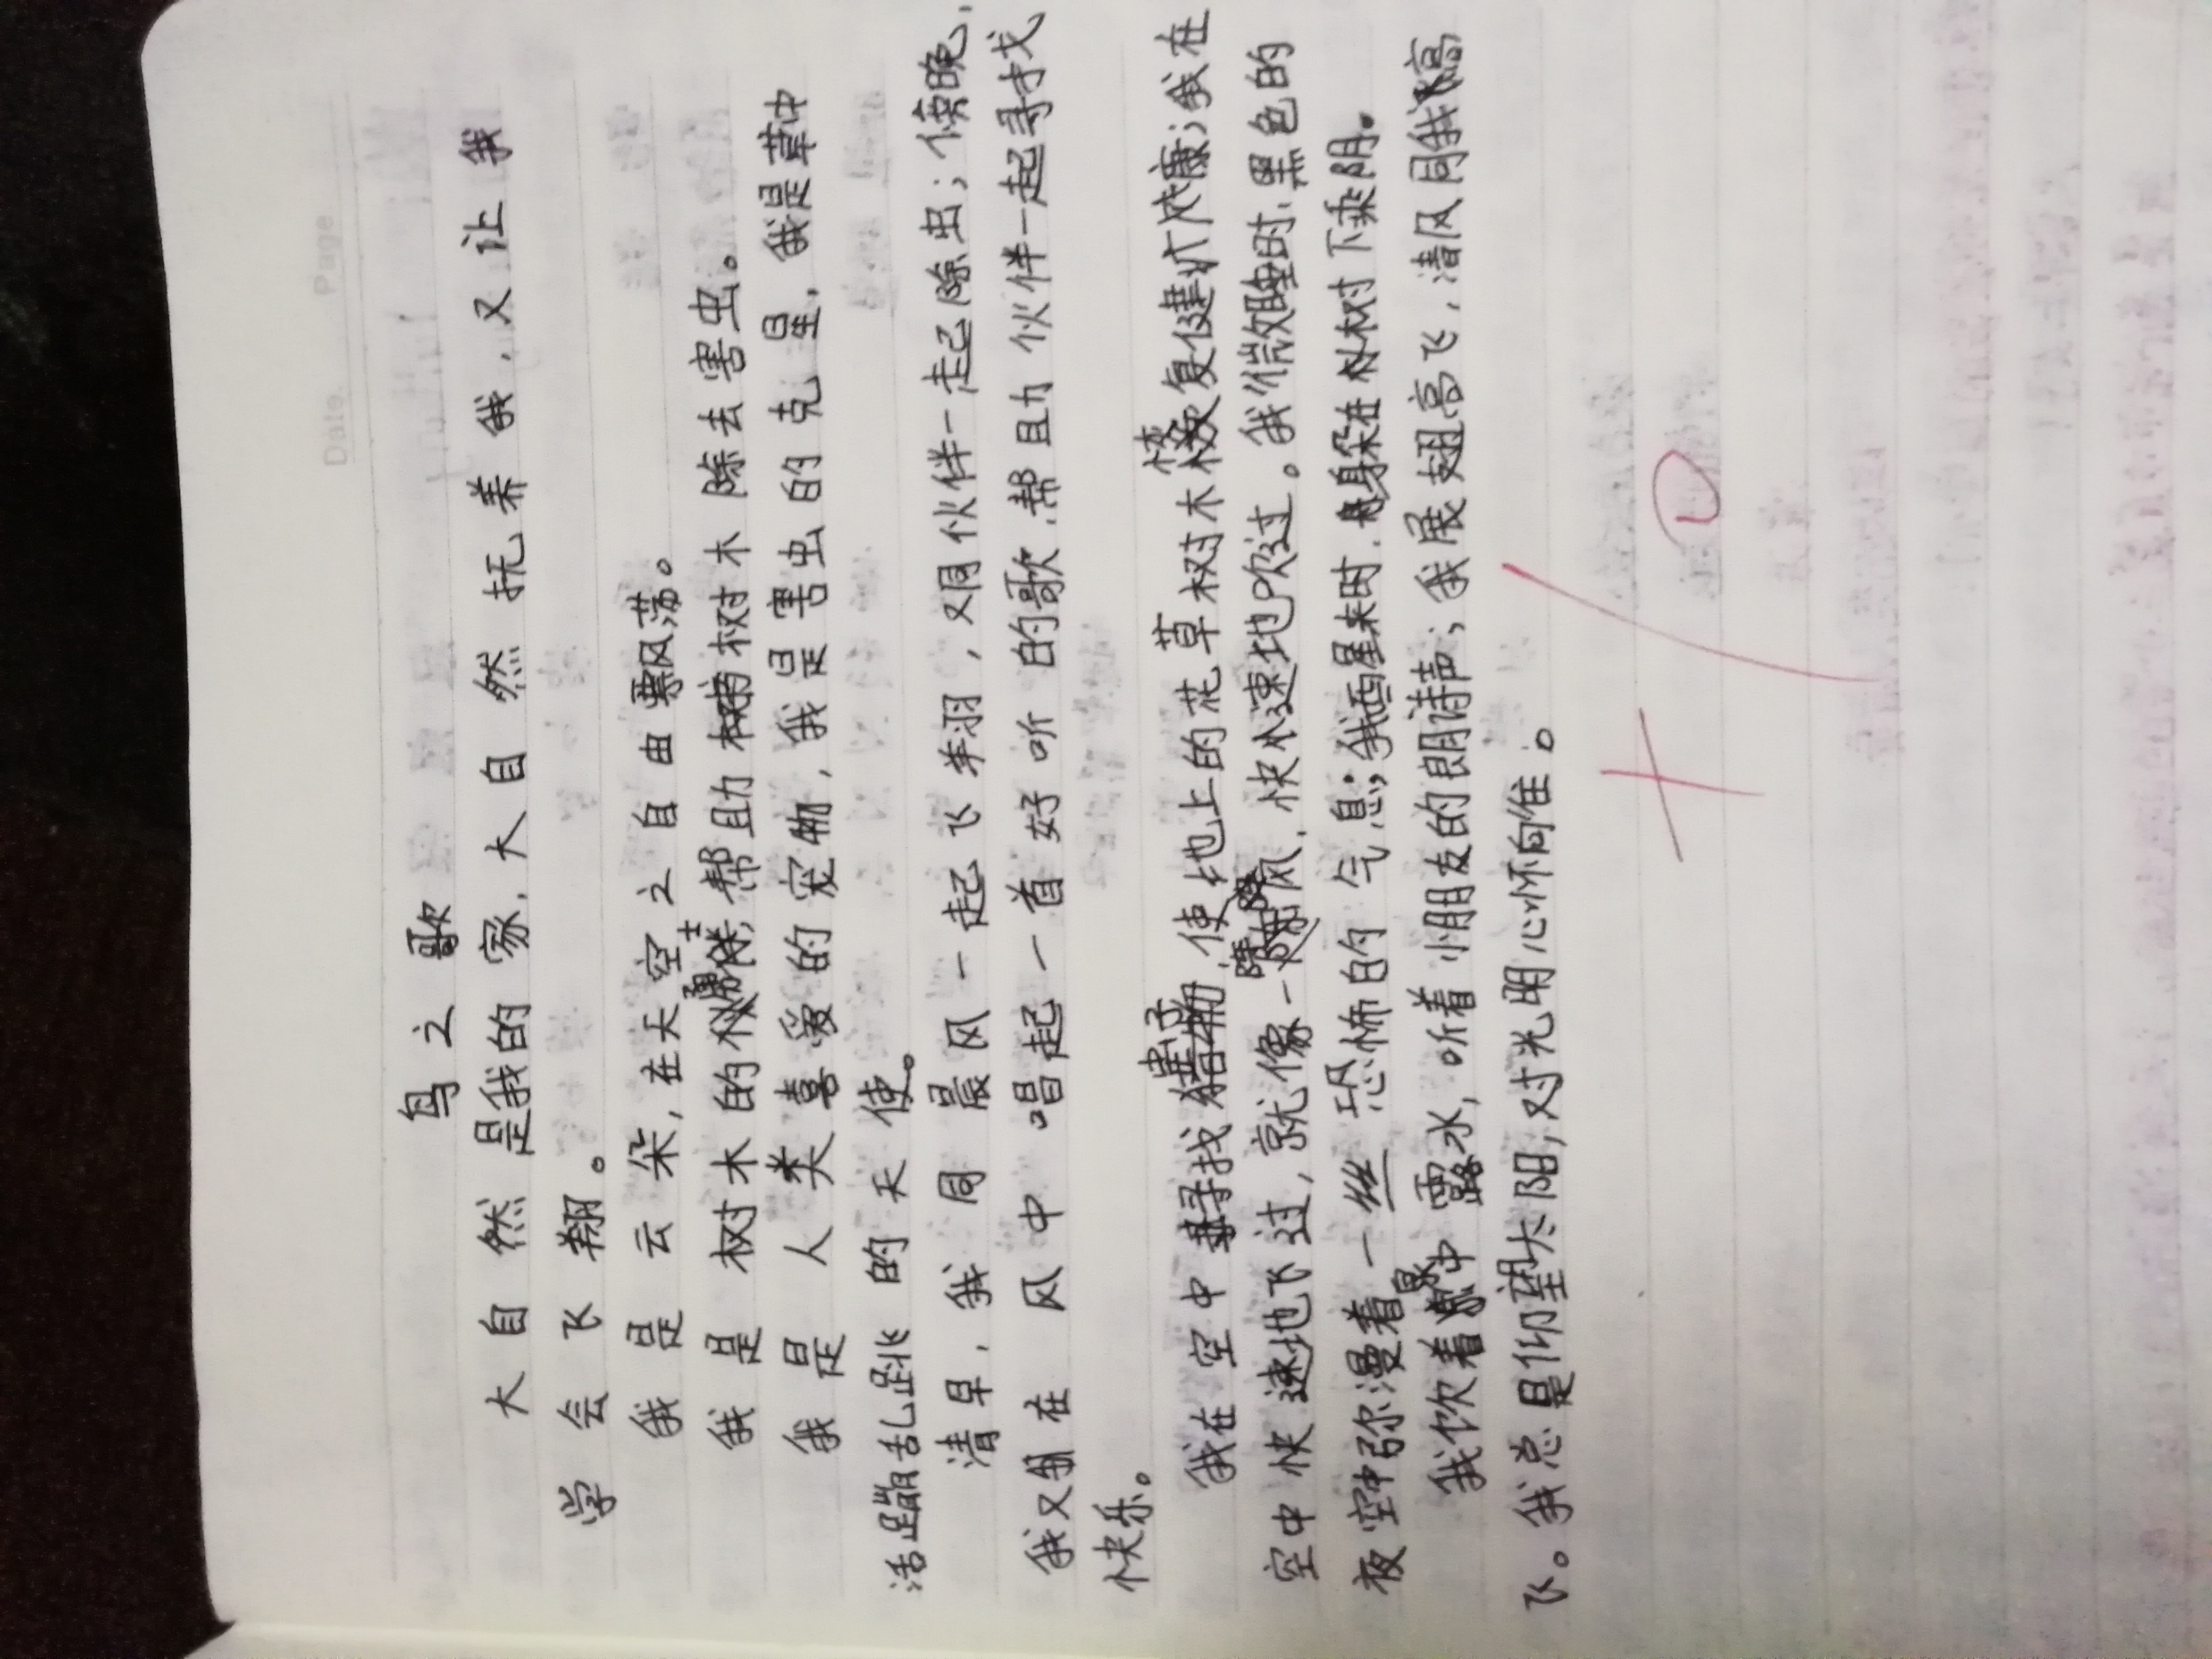 Date.    Page
鸟之歌
大自然是我的家，大自然抚养我，又让我
学会飞翔。
我是云朵，在天空之自由飘荡。
我是树木的勇士，帮助树木除去害虫。
我是人类喜爱的宠物，我是害虫的克星，我是草中
活蹦乱跳的天使。
清早，我同晨风一起飞羊羽，又同伙伴一起除虫；傍晚，
我又在风中唱起一首好听的歌，帮助伙伴一起寻找
快乐。
我在空中寻找虫子，使地上的花草树木恢复健康；我在
空中快速地飞过，就像一阵风，快速地吹过。我微睡时，黑色的
夜空中弥漫着一丝恐怖的气息；我醒来时，身躲在树下乘阴。
我饮着泉中露水，听着小朋友的朗诗声；我展翅高飞，清风同我高
飞。我总是仰望太阳，对光明心怀向往。